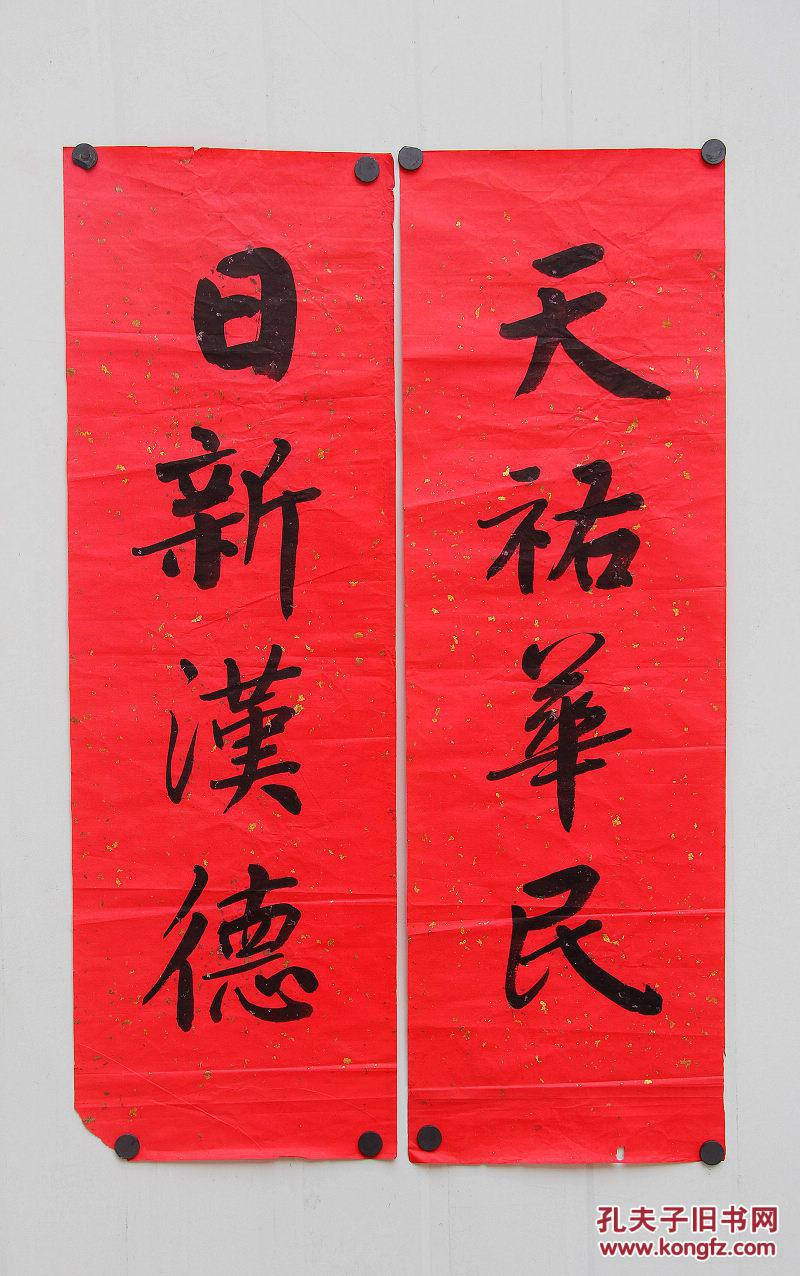 天祐華民
日新漢德
孔夫子旧书网
www.kongfz.com